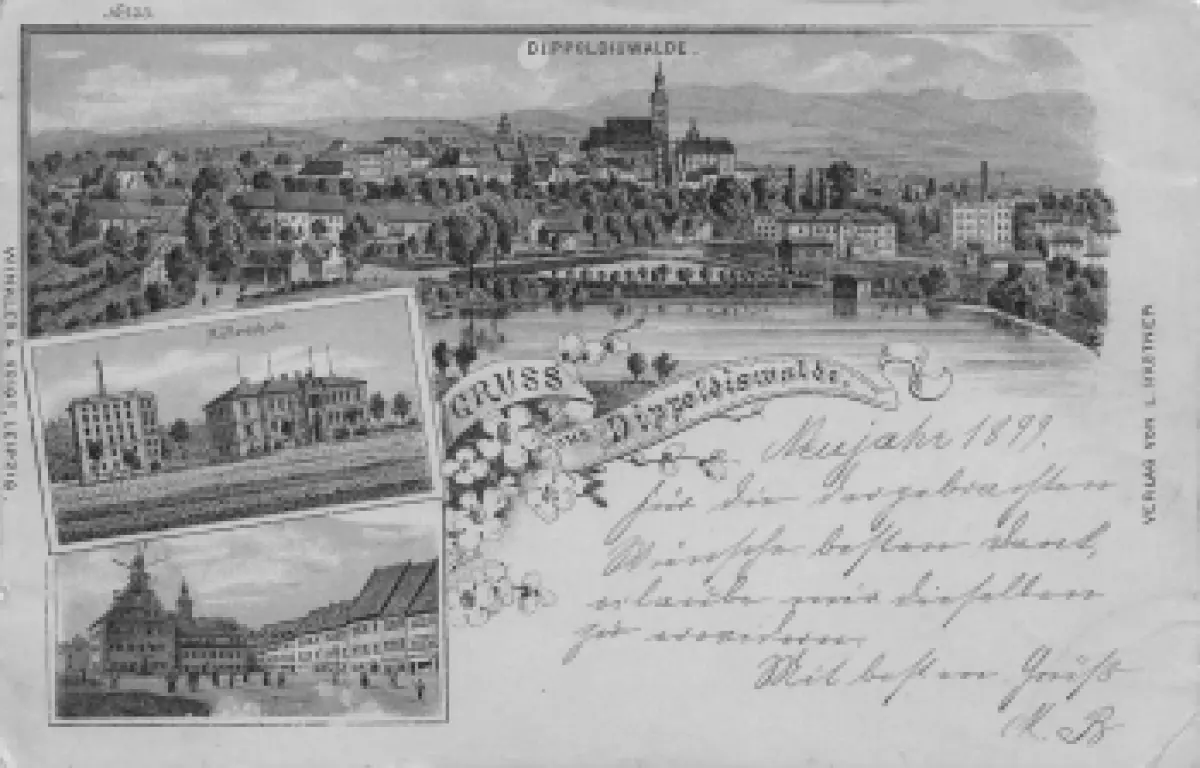 DIPPOLDISWALDE.
GRUSS
aus Dippoldiswalde.
Neujahr 1899.
für die dargebrachten
Wünsche besten Dank,
erlaube mir dieselben
zu erwidern.
Mit besten Gruß
K. B
WINKLER & VOIGT, LEIPZIG.
VERLAG VON L.